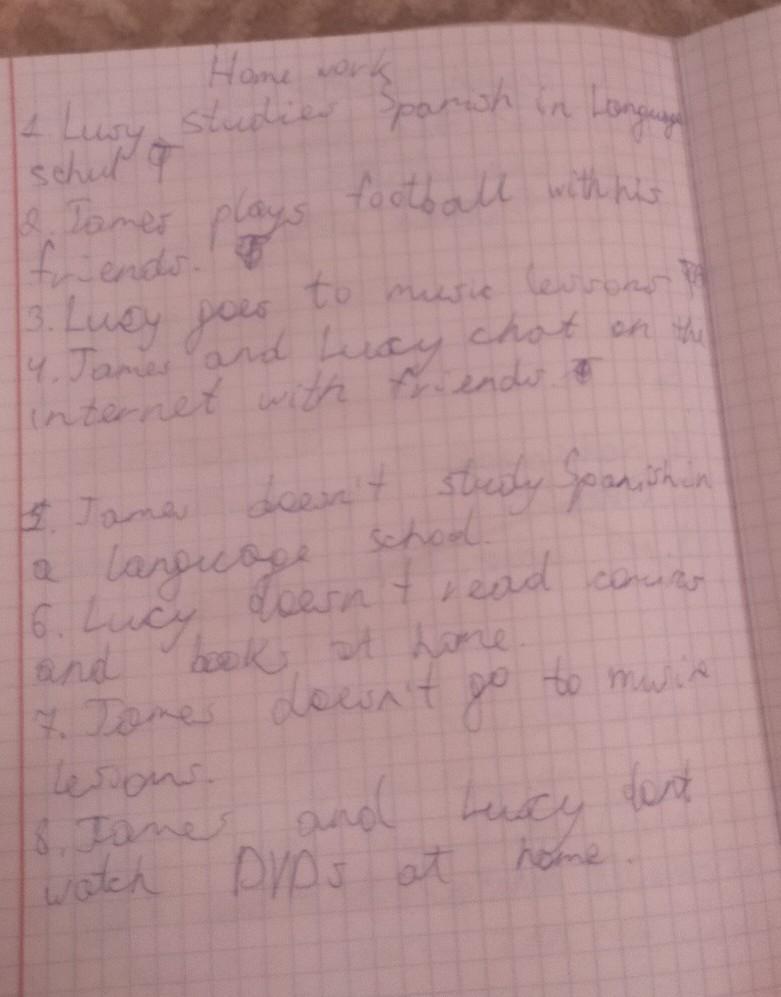 Home work
1. Lucy studies Spanish in Language
schul T
2. James plays football with his
friends.
3. Lucy goes to music lessons
4. James and Lucy chat on the
internet with friends.
5. James doesn't study Spanish in
a language school.
6. Lucy doesn't read comics
and books at home.
7. James doesn't go to music
lessons.
8. James and Lucy don't
watch DVDs at home.